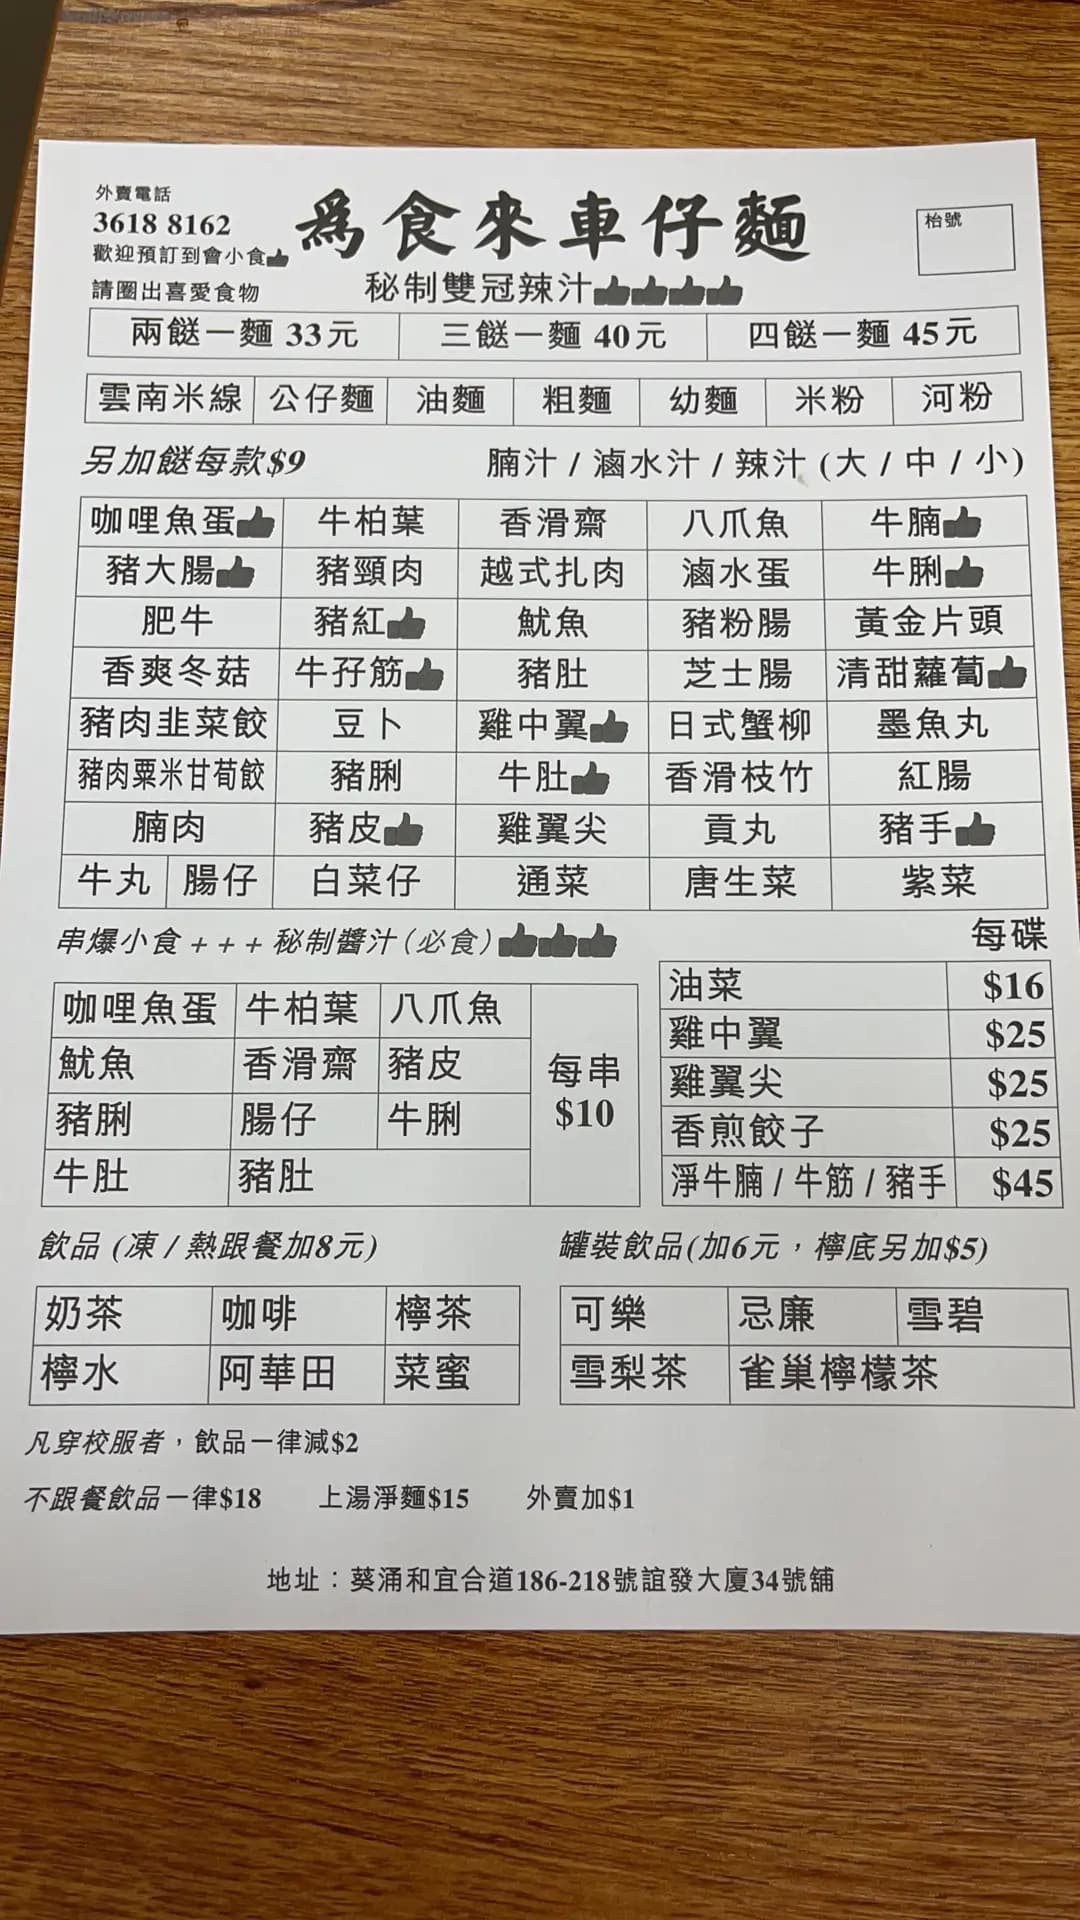 外賣電話
3618 8162
歡迎預訂到會小食
請圈出喜愛食物
為食來車仔麵
秘制雙冠辣汁
枱號
兩餸一麵 33元 三餸一麵 40元 四餸一麵 45元
雲南米線 公仔麵 油麵 粗麵 幼麵 米粉 河粉
另加餸每款$9 腩汁 / 滷水汁 / 辣汁 (大 / 中 / 小)
咖哩魚蛋 牛柏葉 香滑齋 八爪魚 牛腩
豬大腸 豬頸肉 越式扎肉 滷水蛋 牛脷
肥牛 豬紅 魷魚 豬粉腸 黃金片頭
香爽冬菇 牛孖筋 豬肚 芝士腸 清甜蘿蔔
豬肉韭菜餃 豆卜 雞中翼 日式蟹柳 墨魚丸
豬肉粟米甘荀餃 豬脷 牛肚 香滑枝竹 紅腸
腩肉 豬皮 雞翼尖 貢丸 豬手
牛丸 腸仔 白菜仔 通菜 唐生菜 紫菜
串爆小食 + + + 秘制醬汁 (必食)
咖哩魚蛋 牛柏葉 八爪魚
魷魚 香滑齋 豬皮
豬脷 腸仔 牛脷
牛肚 豬肚
每串
$10
每碟
油菜 $16
雞中翼 $25
雞翼尖 $25
香煎餃子 $25
淨牛腩 / 牛筋 / 豬手 $45
飲品 (凍 / 熱跟餐加8元)
奶茶 咖啡 檸茶
檸水 阿華田 菜蜜
罐裝飲品(加6元，檸底另加$5)
可樂 忌廉 雪碧
雪梨茶 雀巢檸檬茶
凡穿校服者，飲品一律減$2
不跟餐飲品一律$18 上湯淨麵$15 外賣加$1
地址：葵涌和宜合道186-218號誼發大廈34號舖